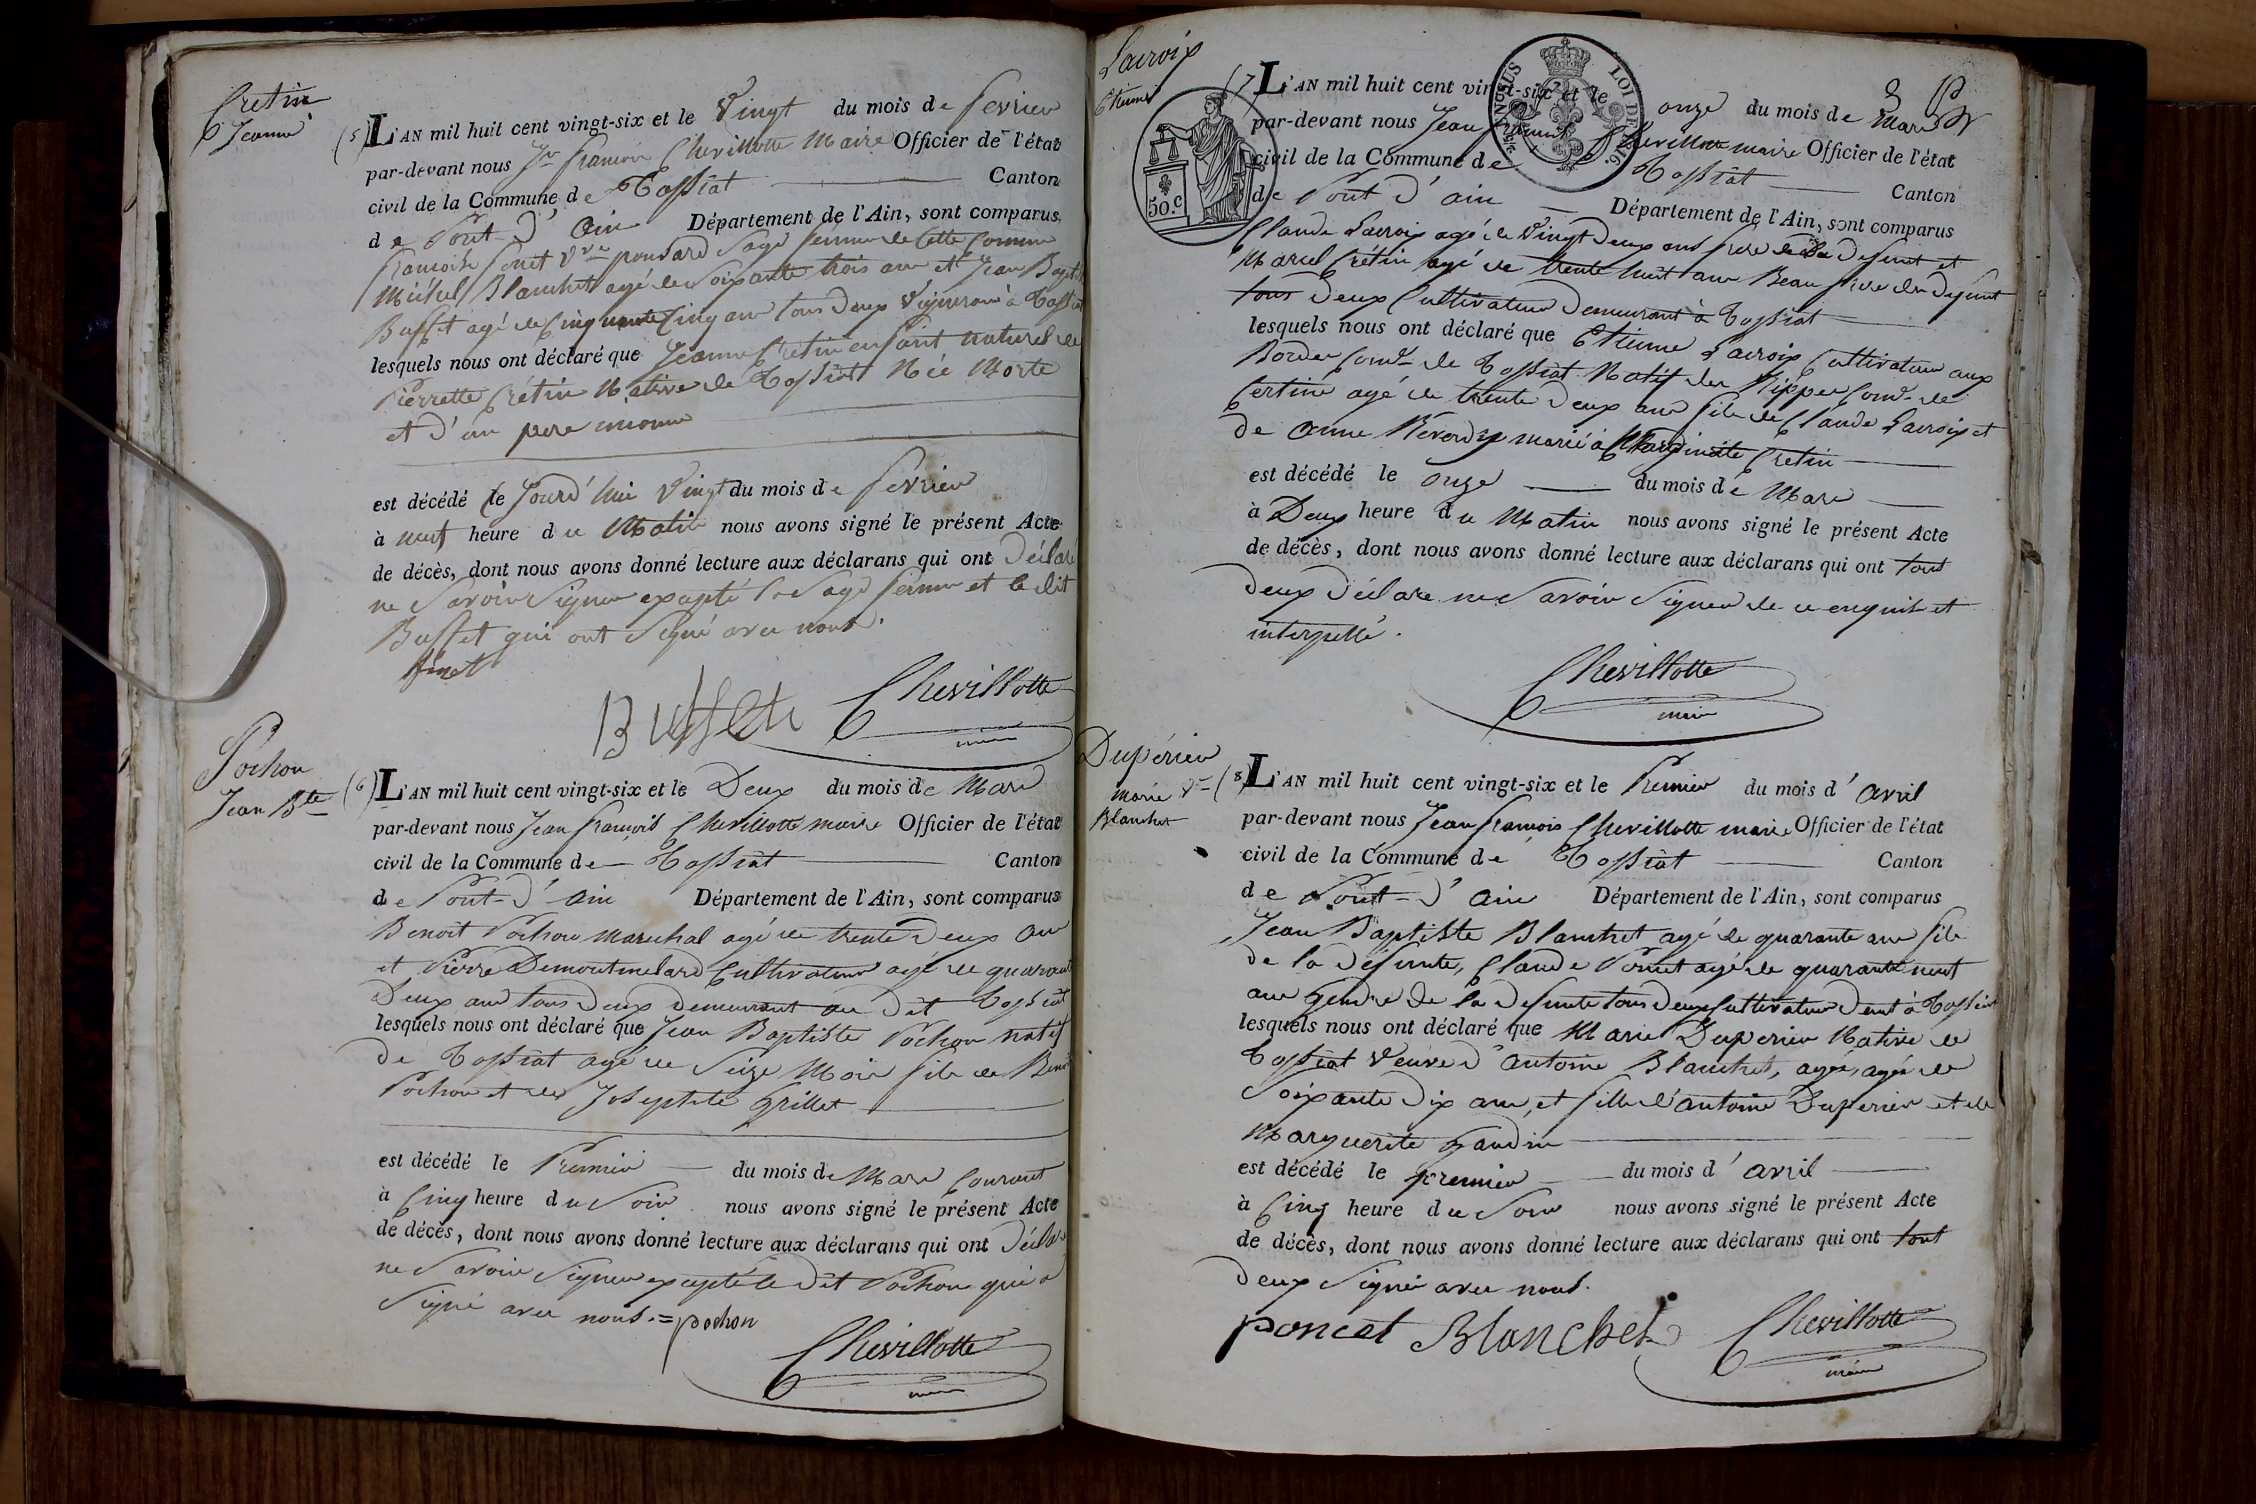 Cretin
Jeanne
(5) L'AN mil huit cent vingt-six et le Vingt du mois de fevrier
par-devant nous Jn françois Chevillotte Maire Officier de l'état
civil de la Commune de Tossiat Canton
de Pont-d'ain Département de l'Ain, sont comparus
françoise vve ponsard Sage femme de Cette Commune
Michel Blanchet agé de Soixante trois ans et Jean Baptiste
Buffet agé de Cinquante Cinq ans tous deux Vignerons à Tossiat
lesquels nous ont déclaré que Jeanne Crétin enfant naturel de
Pierrette Crétin Native de Tossiat Née Morte
et d'un pere inconnu
est décédé le Jourd'hui Vingt du mois de fevrier
à neuf heure du Matin nous avons signé le présent Acte
de décès, dont nous avons donné lecture aux déclarans qui ont déclaré
ne Savoir Signer exepté la Sage femme et le dit
Buffet qui ont Signé avec nous.
Buffet Chevillotte
maire
Pochon
Jean Bte
(6) L'AN mil huit cent vingt-six et le Deux du mois de Mars
par-devant nous Jean françois Chevillotte maire Officier de l'état
civil de la Commune de Tossiat Canton
de Pont-d'ain Département de l'Ain, sont comparus
Benoit Pochon marechal agé de trente Deux ans
et Pierre Demontmelard Cultivateur agé de quarante
Deux ans tous Deux demeurant au dit Tossiat
lesquels nous ont déclaré que Jean Baptiste Pochon natif
de Tossiat agé de Seize Mois fils de Benoit
Pochon et de Josephte Grillet
est décédé le Premier du mois de Mars Courant
à Cinq heure du Soir nous avons signé le présent Acte
de décès, dont nous avons donné lecture aux déclarans qui ont déclaré
ne Savoir Signer excepté le dit Pochon qui a
Signé avec nous. = pochon
Chevillotte
maire
Lacroix
Etienne
3
LOI DE 1816.
50.C
(7) L'AN mil huit cent vingt-six et le onze du mois de Mars
par-devant nous Jean françois Chevillotte maire Officier de l'état
civil de la Commune de Tossiat Canton
de Pont d'ain Département de l'Ain, sont comparus
Claude Lacroix agé de Vingt Deux ans frere du Defunt et
Marcel Crétin agé de trente huit ans Beau frere du Defunt
tous Deux Cultivateur Demeurant à Tossiat
lesquels nous ont déclaré que Etienne Lacroix Cultivateur aux
Bordes Comne de Tossiat Natif des Rippes Comne de
Certine agé de trente Deux ans fils de Claude Lacroix et
de Anne Reverdy marié à Cretin
est décédé le onze du mois de Mars
à Deux heure du Matin nous avons signé le présent Acte
de décès, dont nous avons donné lecture aux déclarans qui ont tout
deux Déclare ne Savoir Signer de ce enquis et
interpellé.
Chevillotte
maire
Dupérier
marie Ve
Blanchet
(8) L'AN mil huit cent vingt-six et le Premier du mois d'avril
par-devant nous Jean françois Chevillotte maire Officier de l'état
civil de la Commune de Tossiat Canton
de Pont-d'ain Département de l'Ain, sont comparus
Jean Baptiste Blanchet agé de quarante ans fils
de la defunte, Claude Poncet agé de quarante neuf
ans gendre de la defunte tous deux Cultivateur demt à Tossiat
lesquels nous ont déclaré que Marie Duperier Native de
Tossiat Veuve d'antoine Blanchet, agée, agée de
Soixante Dix ans, et fille d'antoine Duperier et de
Marguerite Gandin
est décédé le premier du mois d'avril
à Cinq heure du Soir nous avons signé le présent Acte
de décès, dont nous avons donné lecture aux déclarans qui ont tout
deux Signé avec nous.
poncet Blanchet Chevillotte
maire